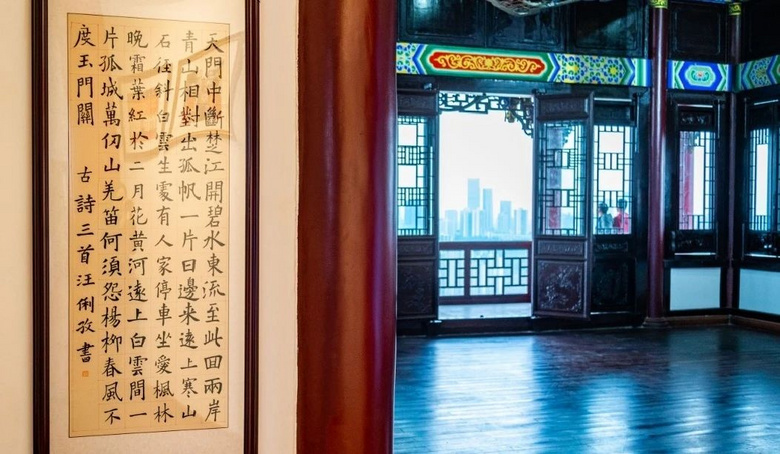 天門中斷楚江開碧水東流至此回兩岸
青山相對出孤帆一片日邊來遠上寒山
石徑斜白雲生處有人家停車坐愛楓林
晚霜葉紅於二月花黄河遠上白雲間一
片孤城萬仞山羌笛何須怨楊柳春風不
度玉門關 古詩三首汪俐孜書